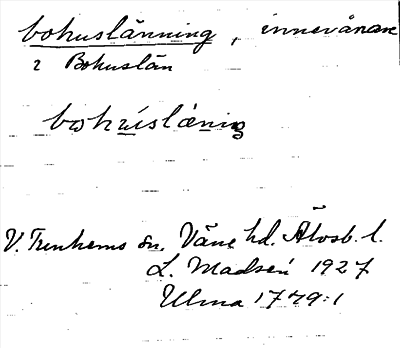 bohuslänning, innevånare
i Bohuslän
bohúslä̀niŋ
V. Tunhems sn. Väne hd. Älvsb. l.
L. Madsén 1927
Ulma 1779:1